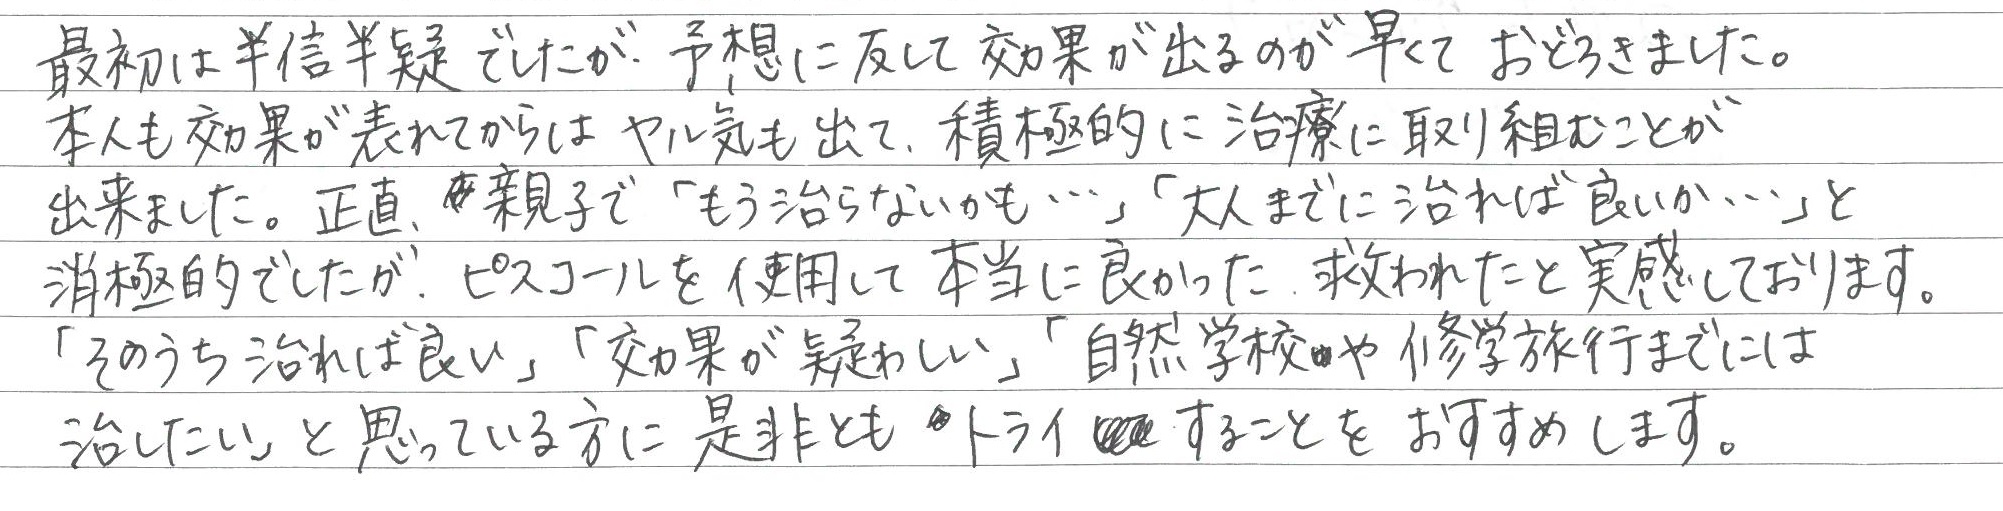 最初は半信半疑でしたが、予想に反して効果が出るのが早くておどろきました。
本人も効果が表れてからはヤル気も出て、積極的に治療に取り組むことが
出来ました。正直、親子で「もう治らないかも…」「大人までに治れば良いか…」と
消極的でしたが、ピスコールを使用して本当に良かった、救われたと実感しております。
「そのうち治れば良い」「効果が疑わしい」「自然学校や修学旅行までには
治したい」と思っている方に是非ともトライすることをおすすめします。